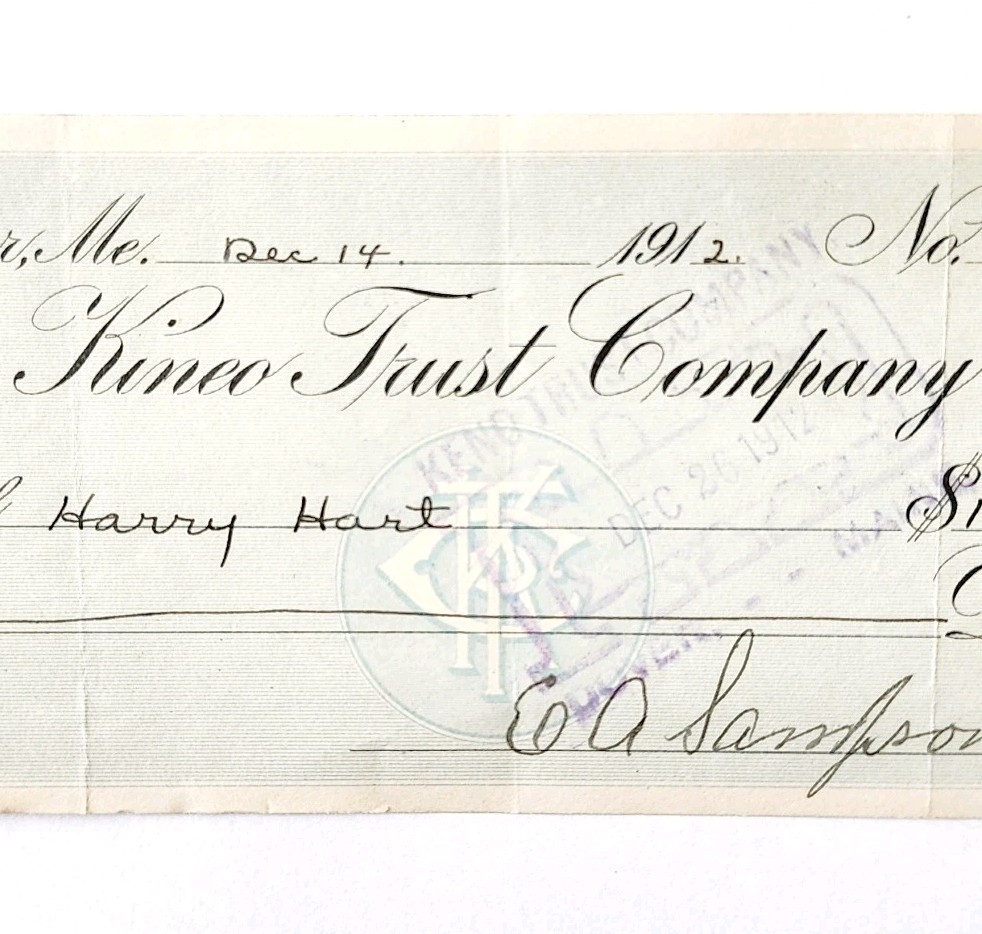 r, Me. Dec 14. 1912. No.
Kineo Trust Company
Harry Hart $1
E A Sampson
KENO TRUST COMPANY
DEC 26 1912
DOVER, - MAINE
KTC